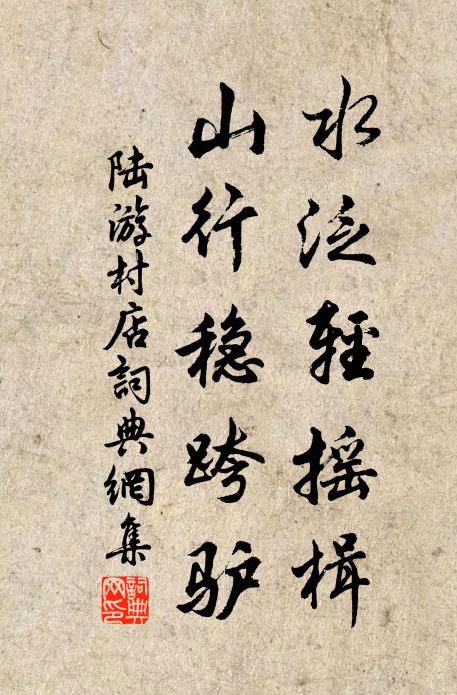 水泛輕摇楫
山行稳跨驴
陆游村店詞典網集
詞典网印